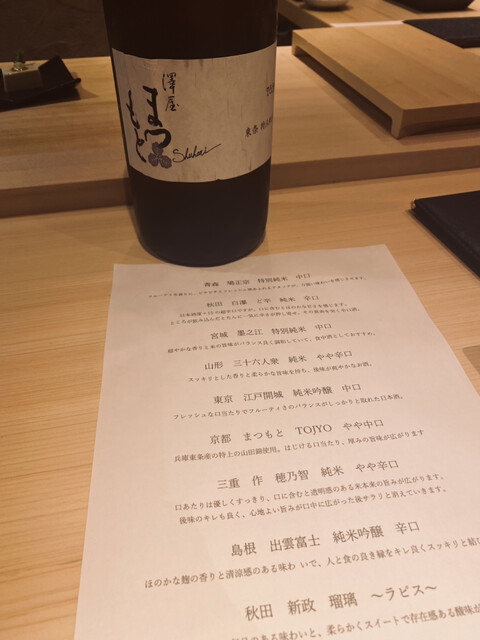 澤屋
まつもと
Shuhari
東条
青森 鳩正宗 特別純米 中口
秋田 白瀑 ど辛 純米 辛口
日本酒度+15の超辛口ですが、口に含むとほのかな甘さを感じます。
宮城 墨之江 特別純米 中口
穏やかな香りと米の旨味がバランス良く調和していて、食中酒としておすすめ。
山形 三十六人衆 純米 やや辛口
スッキリとした香りと柔らかな旨味を持ち、後味が爽やかなお酒。
東京 江戸開城 純米吟醸 中口
フレッシュな口当たりでフルーティさのバランスがしっかりと取れた日本酒。
京都 まつもと TOJYO やや中口
兵庫東条産の特上の山田錦使用。はじける口当たり、厚みの旨味が広がります
三重 作 穂乃智 純米 やや辛口
口あたりは優しくすっきり、口に含むと透明感のある米本来の旨みが広がります。
後味のキレも良く、心地よい旨みが口中に広がった後サラリと消えていきます。
島根 出雲富士 純米吟醸 辛口
ほのかな麹の香りと清涼感のある味わ いで、人と食の良き縁をキレ良くスッキリと結び
秋田 新政 瑠璃 ～ラピス～
のある味わいと、柔らかくスイートで存在感ある酸味が